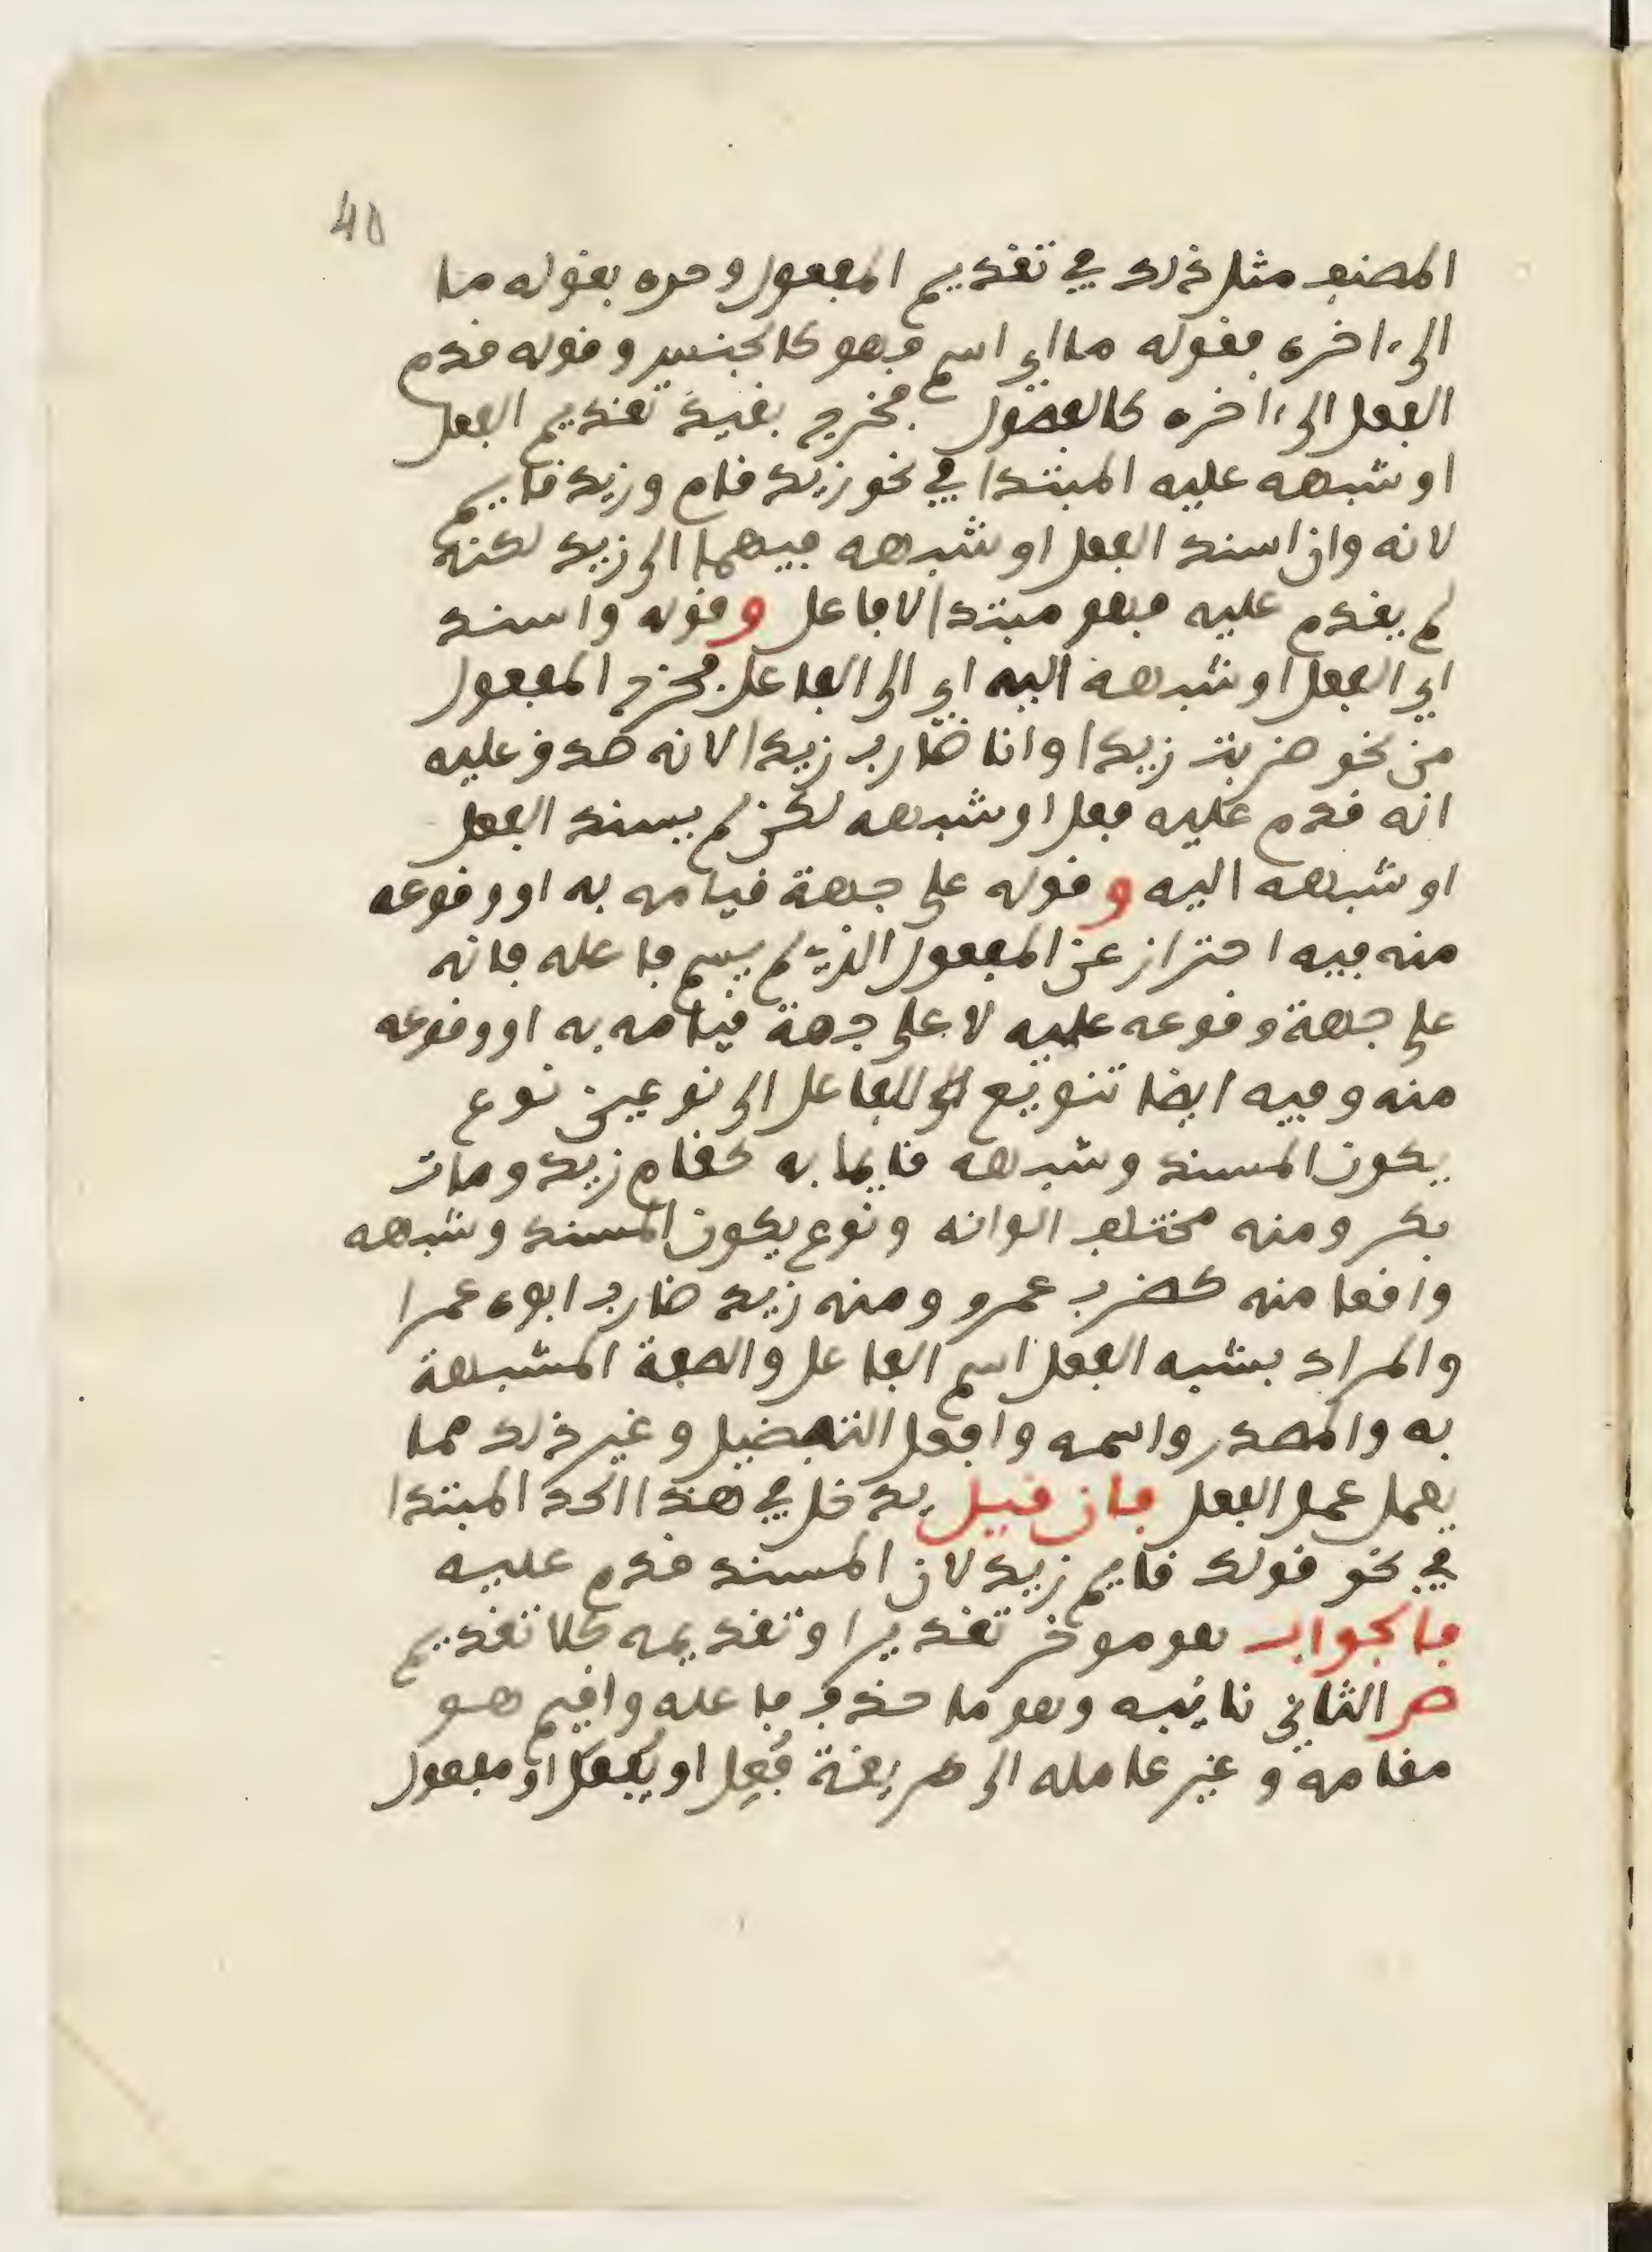 40
المصنف مثل ذلك في تقديم المفعول وحده بقوله ما
الى ءاخره فقوله ما اي اسم فهو كالجنس وقوله قدم
الفعل الى ءاخره كالفصول فخرج بقيد تقديم الفعل
او شبهه عليه المبتدا في نحو زيد قام وزيد قايم
لانه وان اسند الفعل او شبهه فيهما الى زيد لكنه
لم يقدم عليه فهو مبتدا لا فاعل وقوله واسند
اي الفعل او شبهه اليه اي الى الفاعل فخرج المفعول
من نحو ضربت زيدا وانا ضارب زيدا لانه صدق عليه
انه قدم عليه فعل او شبهه لكن لم يسند الفعل
او شبهه اليه وقوله على جهة قيامه به او وقوعه
منه فيه احتراز عن المفعول الذي لم يسم فاعله فانه
على جهة وقوعه عليه لا على جهة قيامه به او وقوعه
منه وفيه ايضا تنويع للفاعل الى نوعين نوع
يكون المسند وشبهه قايما به كقام زيد ومات
بكر ومنه مختلف الوانه ونوع يكون المسند وشبهه
واقعا منه كضرب عمرو ومنه زيد ضارب ابوه عمرا
والمراد بشبه الفعل اسم الفاعل والصفة المشبهة
به والمصدر واسمه وافعل التفضيل وغير ذلك مما
يعمل عمل الفعل فان قيل يدخل في هذا الحد المبتدا
في نحو قولك قايم زيد لان المسند قدم عليه
فالجواب هو موخر تقديرا وتقديمه كلا تقديم
ص الثاني نائبه وهو ما حذف فاعله واقيم هو
مقامه وغير عامله الى طريقة فُعِل او يُفعَل او مفعول